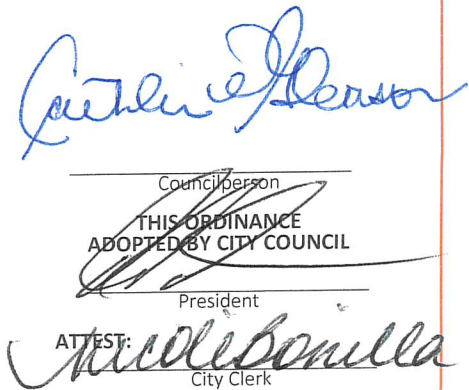 Gleason
Councilperson
THIS ORDINANCE
ADOPTED BY CITY COUNCIL
President
ATTEST: Nicole Bonilla
City Clerk